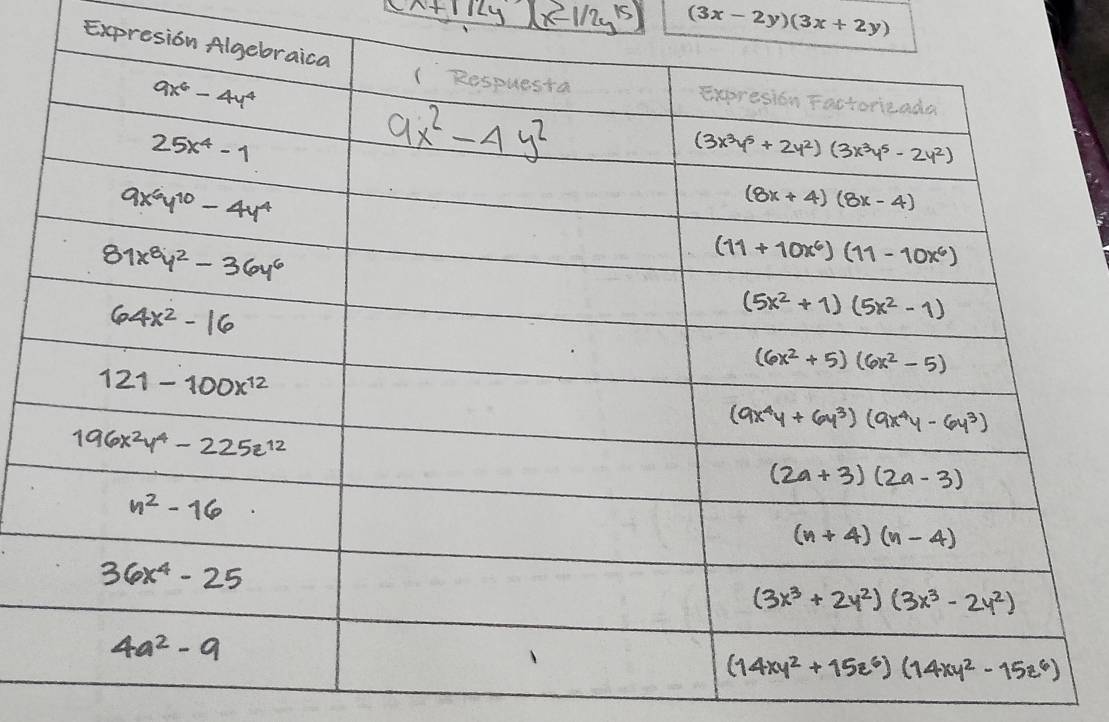 (x+1/2y)(x²-1/2y¹⁵)
(3x - 2y)(3x + 2y)
Expresión Algebraica
( Respuesta
Expresión Factorizada
9x⁶ - 4y⁴
9x² - 4y²
(3x³y⁵ + 2y²) (3x³y⁵ - 2y²)
25x⁴ - 1
(8x + 4) (8x - 4)
9x⁶y¹⁰ - 4y⁴
(11 + 10x⁶) (11 - 10x⁶)
81x⁸y² - 36y⁶
(5x² + 1) (5x² - 1)
64x² - 16
(6x² + 5) (6x² - 5)
121 - 100x¹²
(9x⁴y + 6y³) (9x⁴y - 6y³)
196x²y⁴ - 225z¹²
(2a + 3) (2a - 3)
n² - 16
(n + 4) (n - 4)
36x⁴ - 25
(3x³ + 2y²) (3x³ - 2y²)
4a² - 9
(14xy² + 15z⁶) (14xy² - 15z⁶)